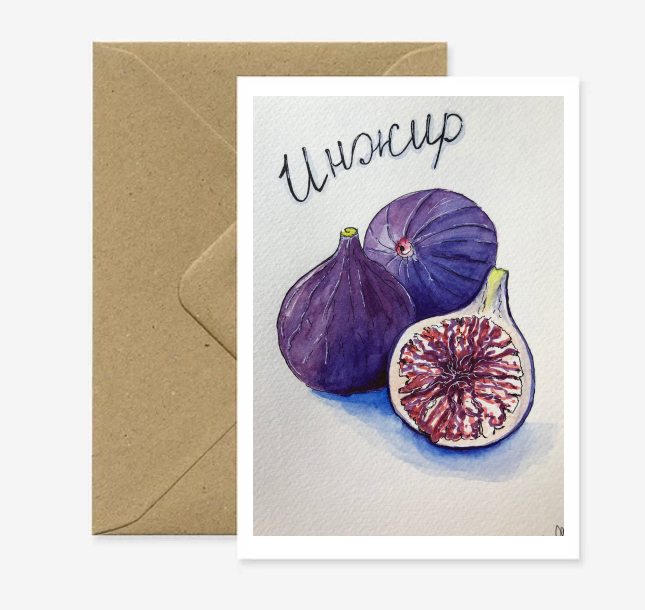 Инжир